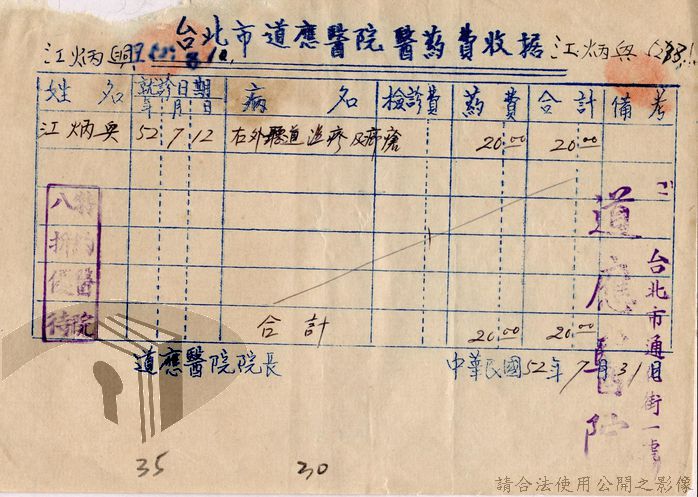 台北市道應醫院醫葯費收据
江炳興
江炳興
姓名 就診日期 年月日 病名 檢診費 葯費 合計 備考
江炳興 52 7 12 右外聽道濕疹及瘡 20.00 20.00
合計 20.00 20.00
道應醫院院長 中華民國52年7月31日
特約醫院
八折優待
道應醫院
台北市通街一號
35 20
請合法使用公開之影像